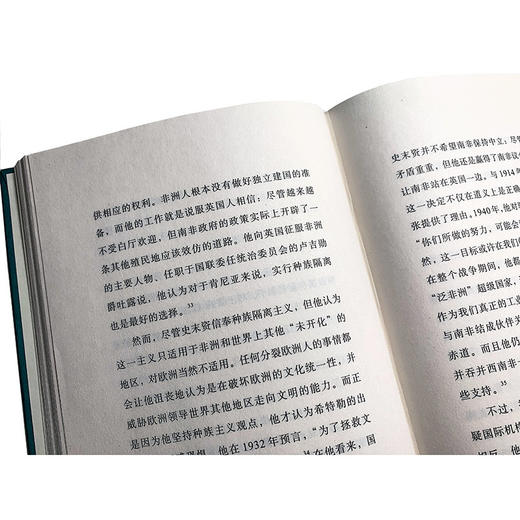 供相应的权利。非洲人根本没有做好独立建国的准
备，而他的工作就是说服英国人相信：尽管越来越
不受白厅欢迎，但南非政府的政策实际上开辟了一
条其他殖民地应该效仿的道路。他向英国征服非洲
的主要人物、任职于国联委任统治委员会的卢吉勋
爵吐露说，他认为对于肯尼亚来说，实行种族隔离
也是最好的选择。33
然而，尽管史末资信奉种族隔离主义，但他认为
这一主义只适用于非洲和世界上其他“未开化”的
地区，对欧洲当然不适用。任何分裂欧洲人的事情都
会让他沮丧地认为是在破坏欧洲的文化统一性，并
威胁欧洲领导世界其他地区走向文明的能力。而正
是因为他坚持种族主义观点，他才认为希特勒的出
他在 1932 年预言，“为了拯救文
在他看来，国
史末资并不希望南非保持中立；尽管
矛盾重重，但他还是赢得了南非议
让南非站在英国一边。与 1914
这一决定不仅在道义上是正确
张提供了理由。1940 年，他对
“你们所做的努力，可能会
这一目标或许在我们
在整个战争期间，他都
“泛非洲”超级国家，
作为我们真正的工
与南非结成伙伴关
赤道。而且他仍
并吞并西南非
些支持。”
不过，
疑国际机构
相反，他